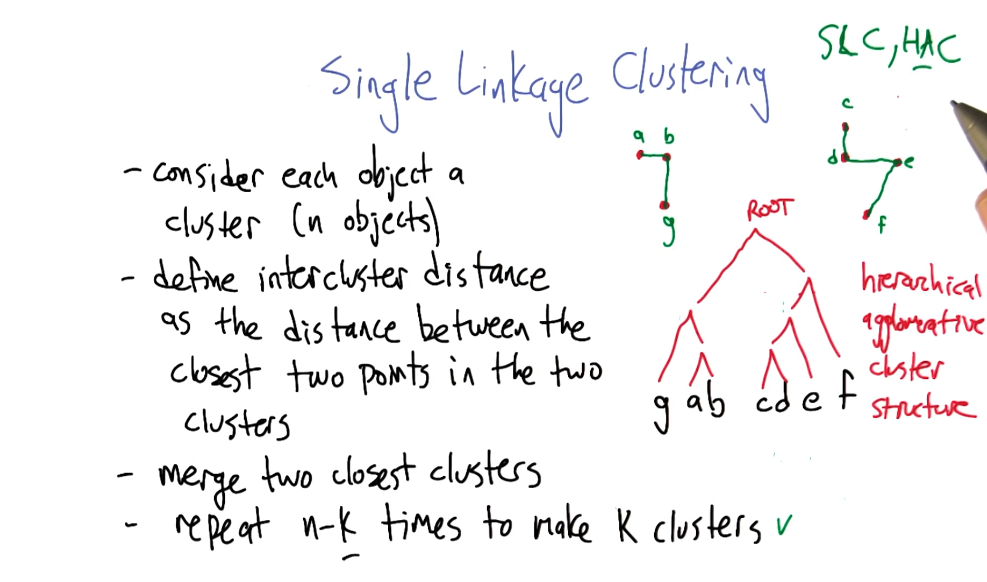 SLC, HAC
Single Linkage Clustering
- consider each object a
cluster (n objects)
- define intercluster distance
as the distance between the
closest two points in the two
clusters
- merge two closest clusters
- repeat n-k times to make K clusters ✓
a b
g
c
d e
f
ROOT
g ab cd e f
hierarchical
agglomerative
cluster
structure